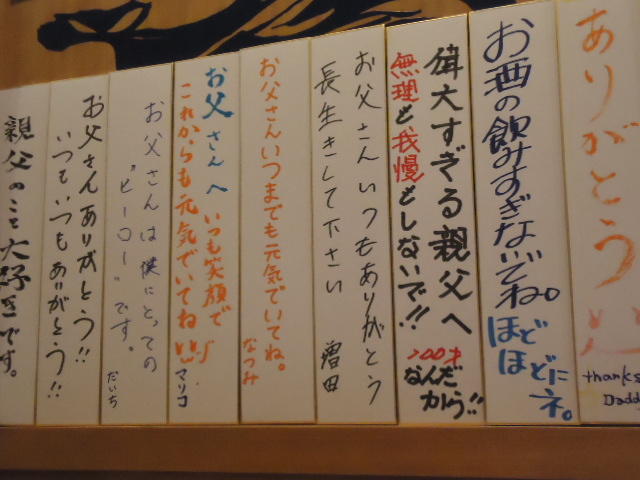 ありがとう
thanks
Daddy
お酒の飲みすぎないでね。
ほど
ほどに
ネ。
偉大すぎる親父へ
無理と我慢としないで!!
200才
なんだ
から!!
お父さんいつもありがとう
長生きして下さい
増田
お父さんいつまでも元気でいてね。
なつみ
お父さんへ いつも笑顔で
これからも元気でいてね
マリコ
お父さんは僕にとっての
"ヒーロー"です。
だいち
お父さんありがとう!!
いつもいつもありがとう!!
親父のこと大好きです。